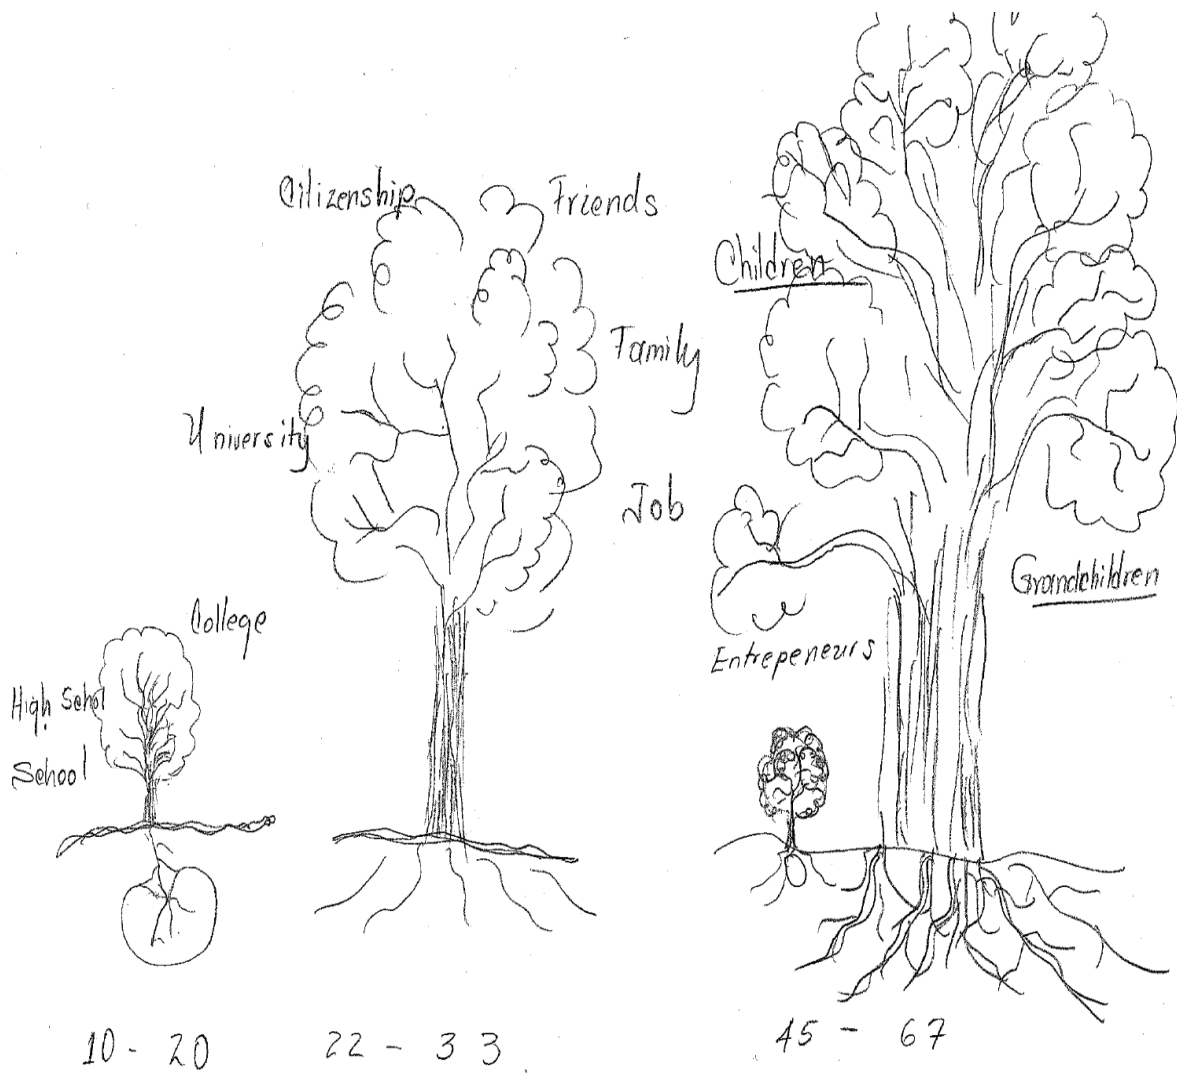 College
High Schol
School
10 - 20
Citizenship
Friends
Family
University
Job
22 - 33
Children
Grandchildren
Entrepeneurs
45 - 67